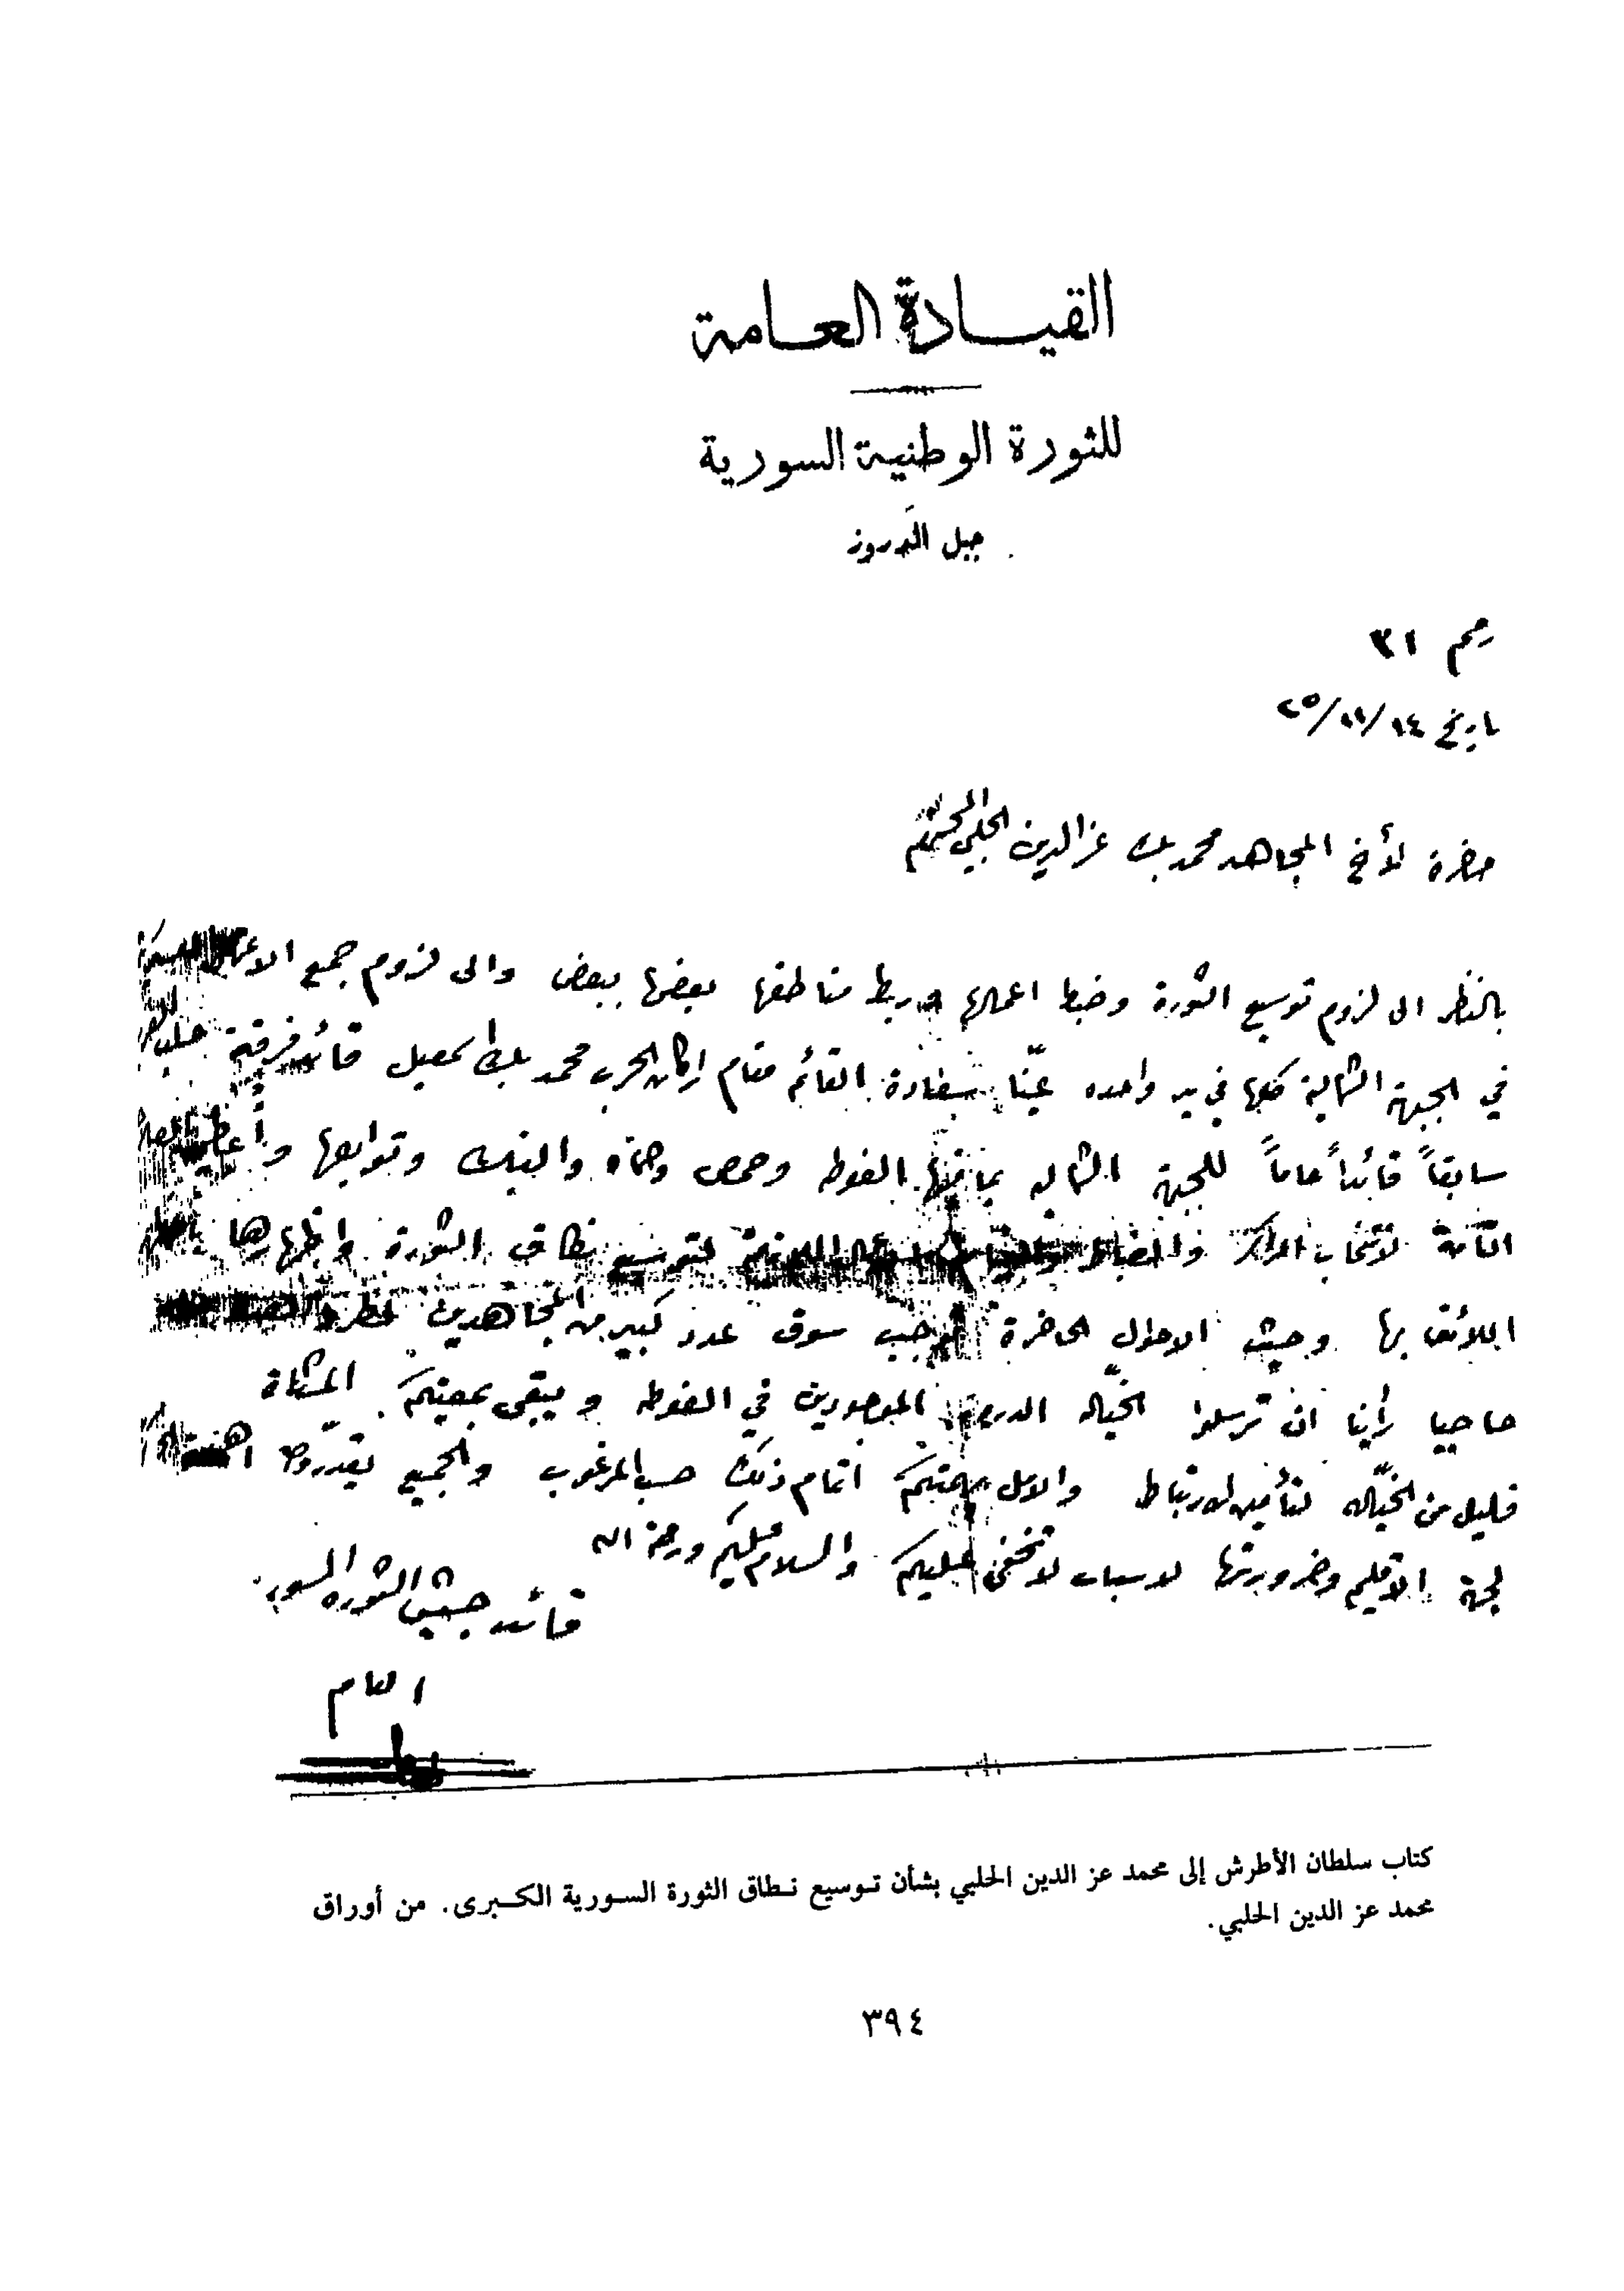 القيادة العامة
للثورة الوطنية السورية
جبل الدروز
رقم ٣١
تاريخ ١٤/١١/٢٥
حضرة الأخ المجاهد محمد بك عز الدين الحلبي المحترم
بالنظر الى لزوم توسيع الثورة وضبط اعمالها وربط مناطقها بعضها ببعض والى لزوم جمع
في الجبهة الشمالية كلها في يد واحده عيّنا سعادة القائم مقام اركان الحرب محمد بك اسمعيل قائد فرقة حلب
سابقاً قائداً عاماً للجبهة الشماليه بما فيها الغوطه وحمص وحماه والنبك وتوابعها و
التامة لانتخاب المراكز والضباط اللازمة لتوسيع نطاق الثورة واظهارها
اللائق بها وحيث الاحوال الحاضرة توجب سوق عدد كبير من المجاهدين
حاصبيا رأينا ان ترسلوا الخيّاله الدروز الموجودين في الغوطه ويبقى بمعيتكم المشاة
قليل من الخيّاله لتأمين الارتباط والامل بهمتكم اتمام ذلك حسب المرغوب والجميع يقدّروا
لجهة الاقليم وضرورتها لاسباب لا تخفى عليكم والسلام عليكم ورحمة الله
قائد جيش الثوره السوريه
العام
كتاب سلطان الأطرش إلى محمد عز الدين الحلبي بشأن توسيع نطاق الثورة السورية الكبرى. من أوراق
محمد عز الدين الحلبي.
٣٩٤